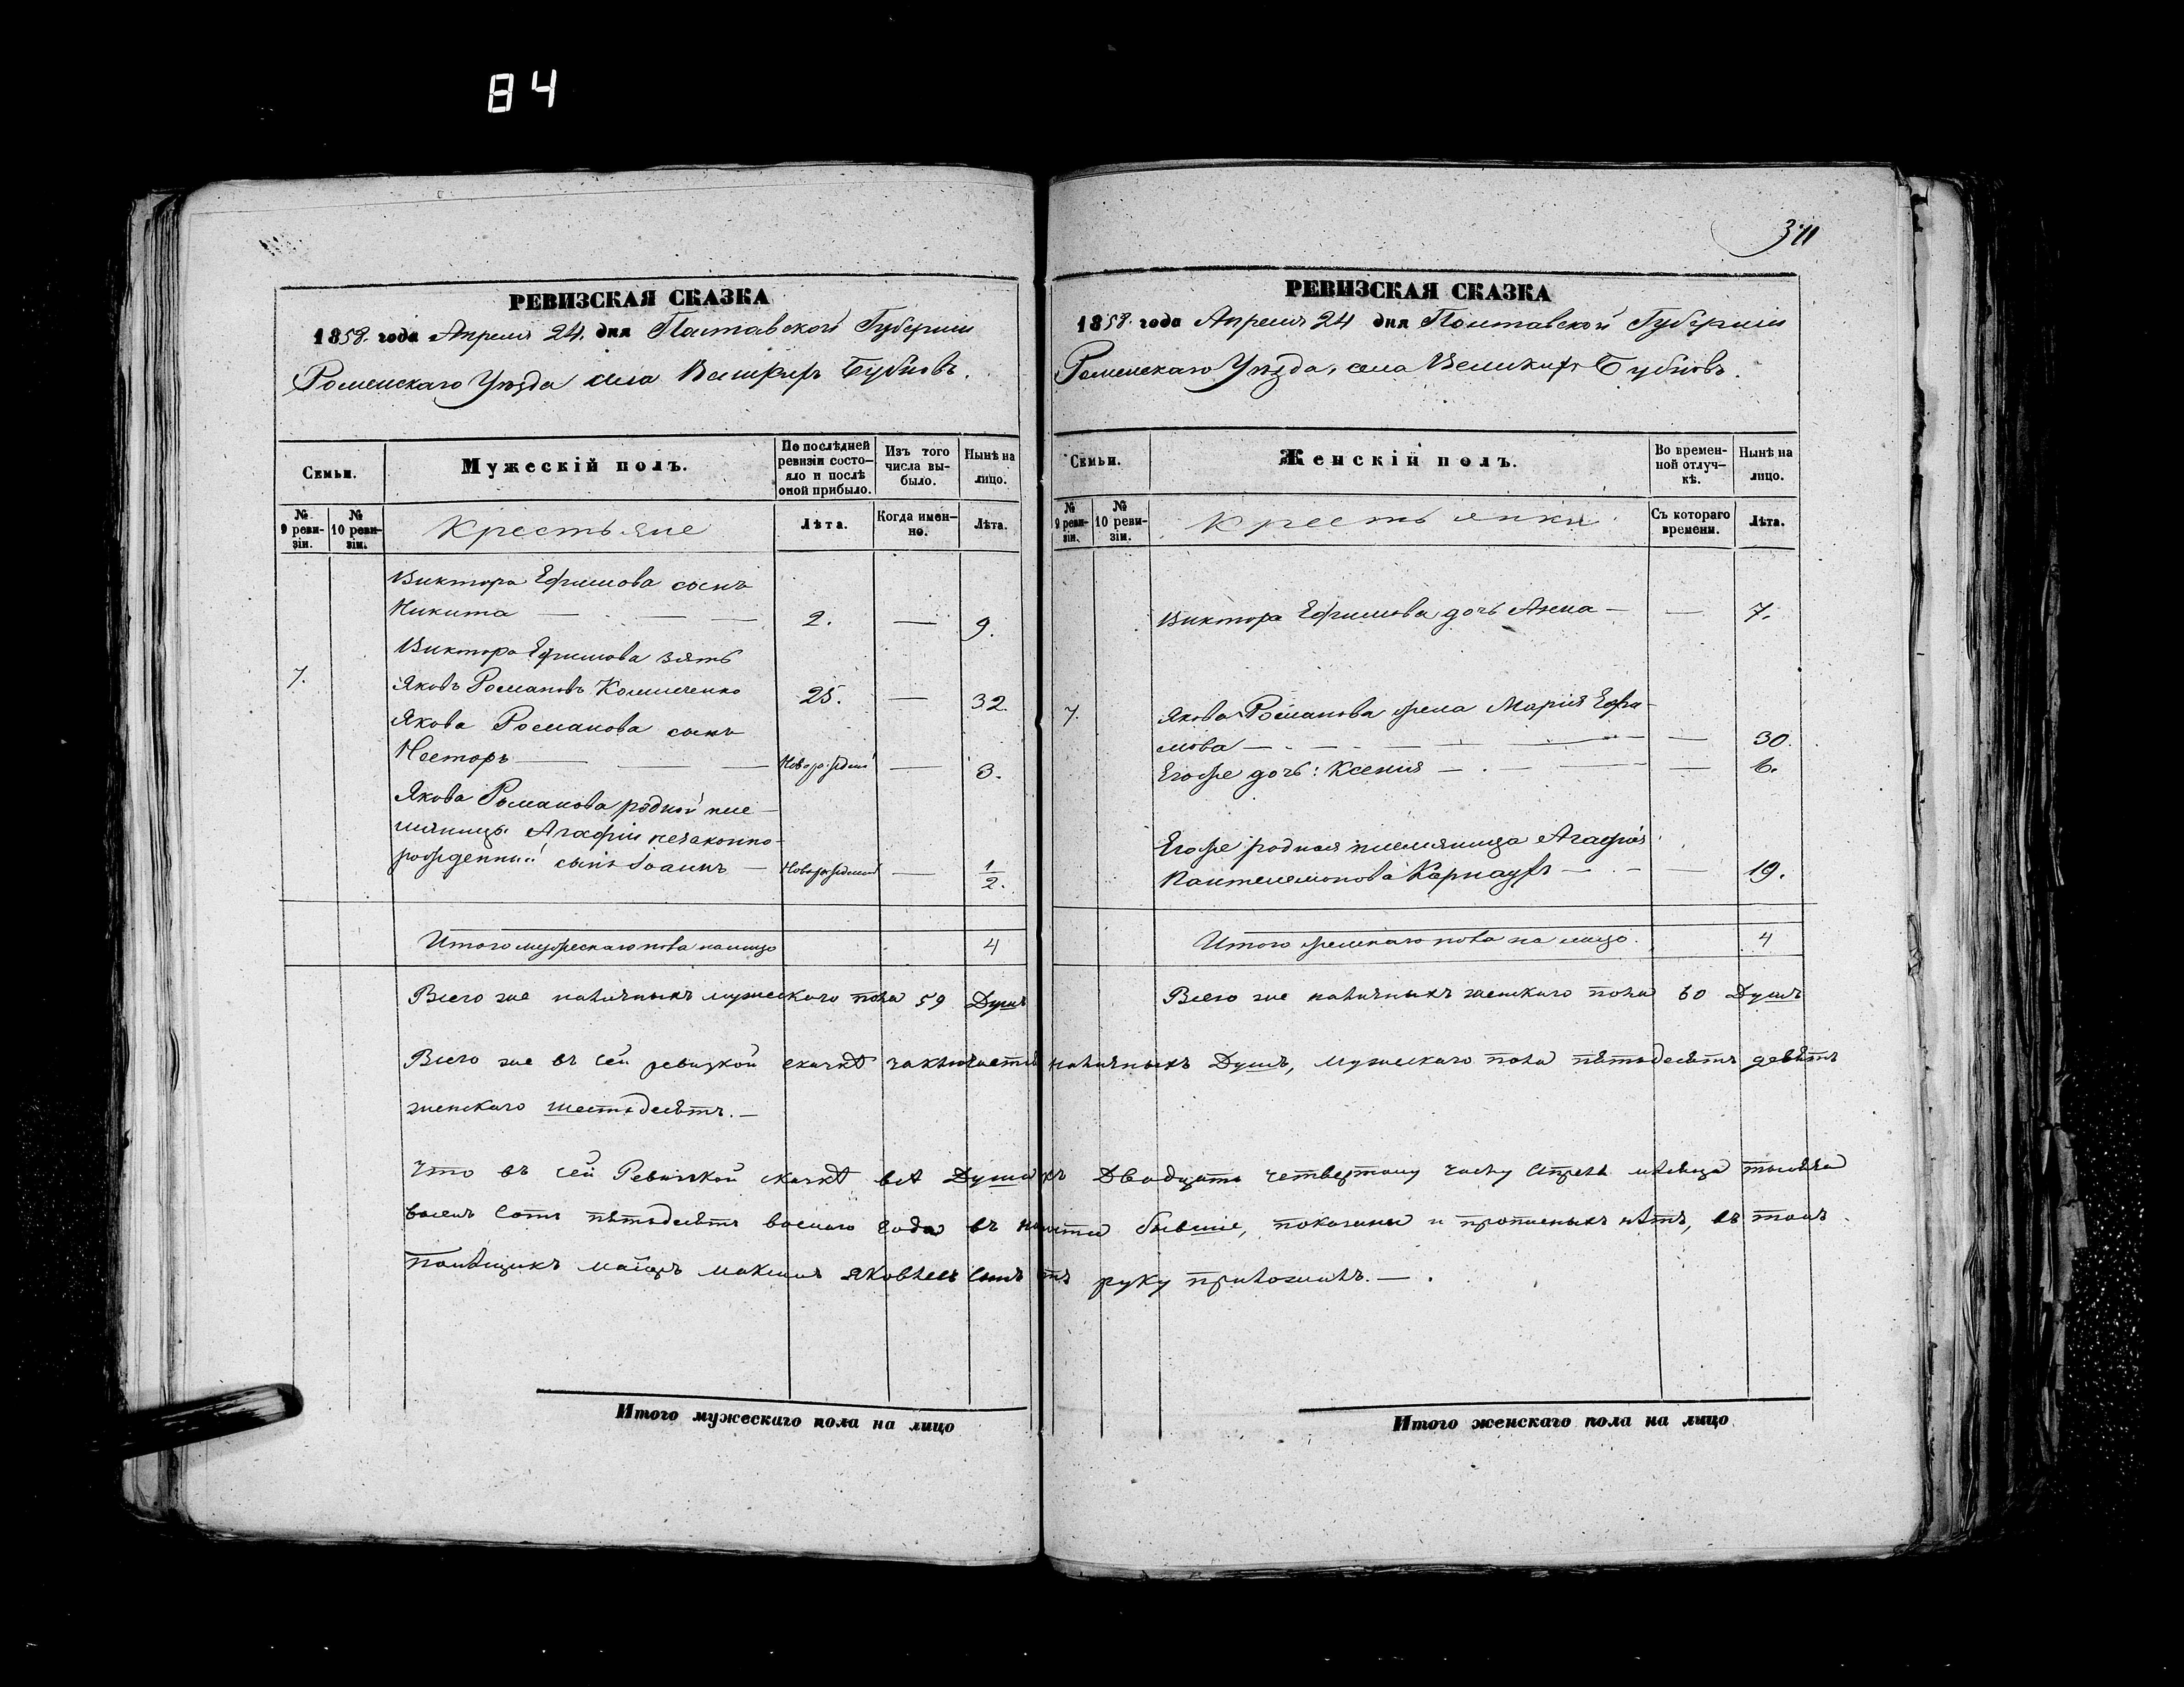 84
РЕВИЗСКАЯ СКАЗКА
1858. года Апреля 24. дня Полтавской Губернии
Роменскаго Уѣзда села Великихъ Бубновъ.
Семьи.
Мужескій полъ.
По послѣдней ревизіи состо-яло и послѣ оной прибыло.
Изъ того числа вы-было.
Нынѣ на лицо.
№ 9 реви-зіи.
№ 10 реви-зіи.
Крестьяне
Лѣта.
Когда имен-но.
Лѣта.
Виктора Ефимова сынъ
Никита — — — 2. — 9.
Виктора Ефимова зять
7. Яковъ Романовъ 25. — 32.
Якова Романова сынъ
Несторъ — — — Новорожденый — 3.
Якова Романова родной пле-
мяницы Агафіи незаконно-
рожденный сынъ Іоаннъ — Новорожденый — 1/2.
Итого мужескаго пола на лицо 4
Всего же наличныхъ мужескаго пола 59 Душъ
РЕВИЗСКАЯ СКАЗКА
1858. года Апреля 24 дня Полтавской Губерніи
Роменскаго Уѣзда, села Великихъ Бубновъ.
Семьи.
Женскій полъ.
Во времен-ной отлуч-кѣ.
Нынѣ на лицо.
№ 9 реви-зіи.
№ 10 реви-зіи.
Крестьянки
Съ котораго времени.
Лѣта.
Виктора Ефимова дочь Анна — — 7.
7. Якова Романова жена Марія Ефи-
мова — — — — 30.
Егоже дочь: Ксенія — — — 6.
Егоже родная племяница Агафія
Пантелемонова Карнаухъ — — — 19.
Итого женскаго пола на лицо. 4
Всего же наличныхъ женскаго пола 60 Душъ
Всего же въ сей ревизкой сказкѣ заключается наличныхъ Душъ, мужескаго пола пѣтьдесѣтъ девѣть
женскаго шестьдесѣтъ. —
Что въ сей Ревизской сказкѣ всѣ Души къ Двадцать четвертому числу Апреля мѣсяца тысѣча
восемъ сотъ пѣтьдесѣтъ восмого года въ налично бывшіе, показаны и прописныхъ нѣтъ, въ томъ
помѣщикъ маіоръ Максимъ Яковлевъ сынъ руку приложилъ. — .
Итого мужескаго пола на лицо
Итого женскаго пола на лицо